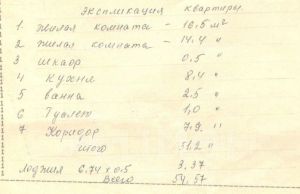 экспликация квартиры.
1 жилая комната – 16.5 м²
2 жилая комната – 14.4 "
3 шкаф 0.5 "
4 Кухня 8.4 "
5 ванна 2.5 "
6 Туалет 1,0 "
7 Коридор 7.9 "
итого 51.2 "
Лоджия 6.74 x 0.5 3.37
Всего 54.57